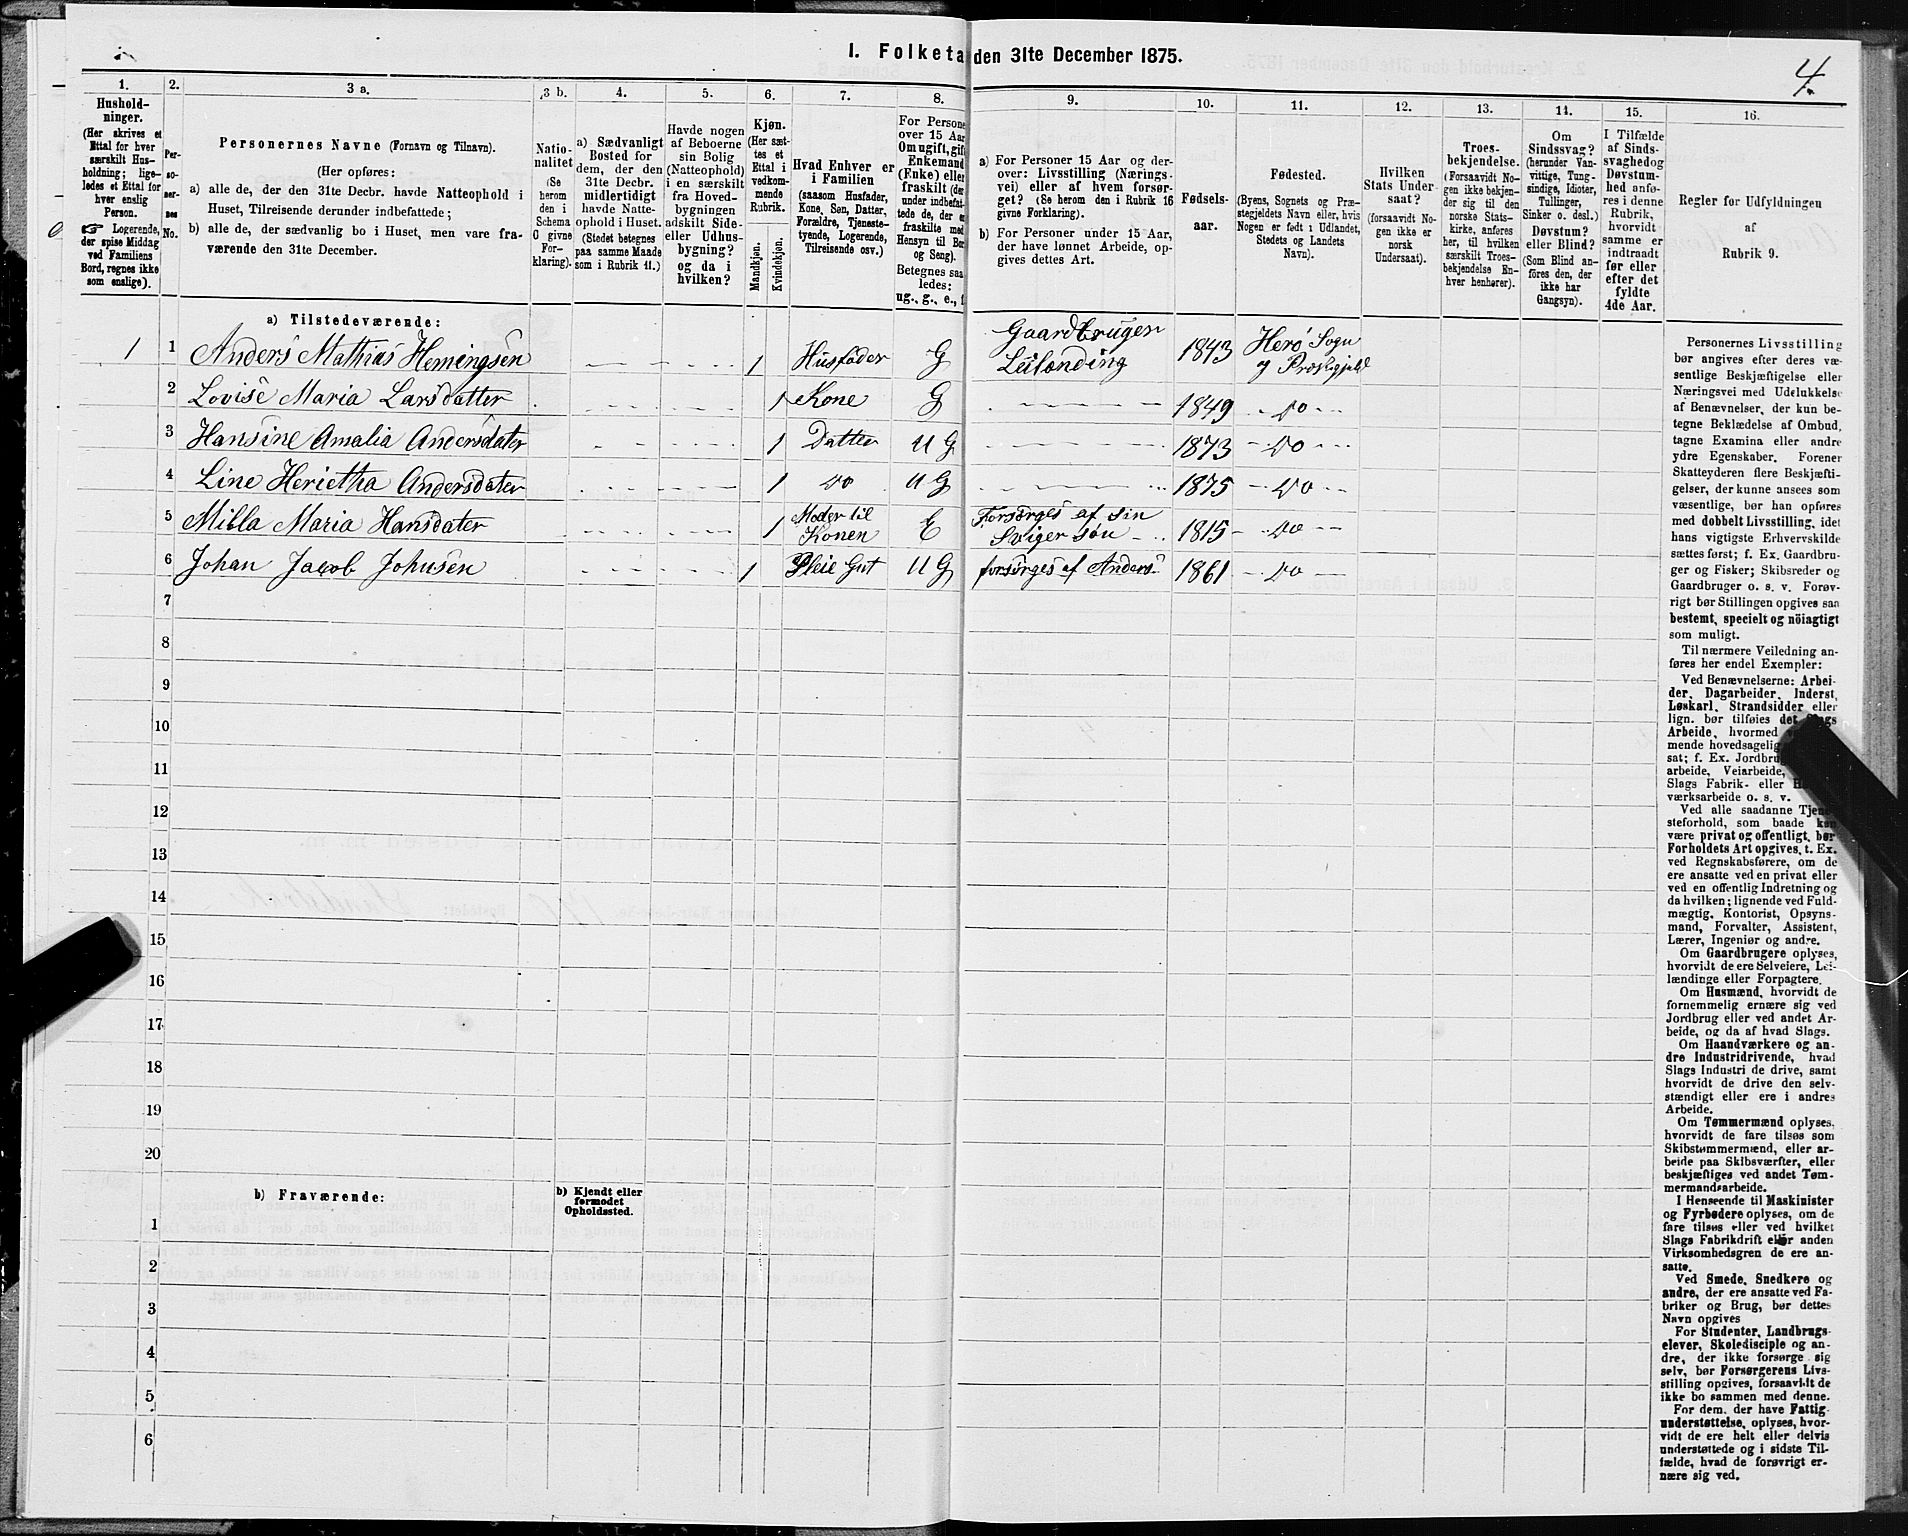 I. Folketa den 31te December 1875.
4.
1.
Hushold-
ninger.
(Her skrives et
Ettal for hver
særskilt Hus-
holdning; lige-
ledes et Ettal for
hver enslig
Person.
☞ Logerende,
der spise Middag
ved Familiens
Bord, regnes ikke
som enslige).
2.
Per-
so-
ner-
nes
No.
3 a.
Personernes Navne (Fornavn og Tilnavn).
(Her opføres:
a) alle de, der den 31te Decbr. havde Natteophold i
Huset, Tilreisende derunder indbefattede;
b) alle de, der sædvanlig bo i Huset, men vare fra-
værende den 31te December.
3 b.
Natio-
nalitet
(Se
herom
den i
Schema
C givne
For-
klaring).
4.
a) Sædvanligt
Bosted for
dem, der den
31te Decbr.
midlertidigt
havde Natte-
ophold i Huset.
(Stedet betegnes
paa samme Maade
som i Rubrik 11.)
5.
Havde nogen
af Beboerne
sin Bolig
(Natteophold)
i en særskilt
fra Hoved-
bygningen
adskilt Side-
eller Udhus-
bygning?
og da i
hvilken?
6.
Kjøn.
(Her sæt-
tes et
Ettal i
vedkom-
mende
Rubrik.
Mandkjøn.
Kvindekjøn.
7.
Hvad Enhver er
i Familien
(saasom Husfader,
Kone, Søn, Datter,
Forældre, Tjeneste-
tyende, Logerende,
Tilreisende osv.)
8.
For Persone
over 15 Aar
Om ugift, gift
Enkemand
(Enke) eller
fraskilt (de
under indbefat-
tede de, der er
fraskilte med
Hensyn til Bo
og Seng).
Betegnes saa
ledes:
ug., g., e., f.
9.
a) For Personer 15 Aar og der-
over: Livsstilling (Nærings-
vei) eller af hvem forsør-
get? (Se herom den i Rubrik 16
givne Forklaring).
b) For Personer under 15 Aar,
der have lønnet Arbeide, op-
gives dettes Art.
10.
Fødsels-
aar.
11.
Fødested.
(Byens, Sognets og Præ-
stegjeldets Navn eller, hvis
Nogen er født i Udlandet,
Stedets og Landets
Navn).
12.
Hvilken
Stats Under-
saat?
(forsaavidt No-
gen ikke er
norsk
Undersaat).
13.
Troes-
bekjendelse.
(Forsaavidt No-
gen ikke bekjen-
der sig til den
norske Stats-
kirke, anføres
her, til hvilken
særskilt Troes-
bekjendelse En-
hver henhører).
14.
Om
Sindssvag?
(herunder Van-
vittige, Tung-
sindige, Idioter,
Tullinger,
Sinker o. desl.)
Døvstum?
eller Blind?
(Som Blind an-
føres den, der
ikke har
Gangsyn).
15.
I Tilfælde
af Sinds-
svaghed og
Døvstum-
hed anfø-
res i denne
Rubrik,
hvorvidt
samme er
indtraadt
før eller
efter det
fyldte
4de Aar.
16.
Regler for Udfyldningen
af
Rubrik 9.
a) Tilstedeværende:
1 1 Anders Mathias Hemingsen 1 Husfader G Gaardbruger Leilending 1843 Herø Sogn og Præstgjeld
2 Lovise Maria Larsdatter 1 Kone G 1849 Do
3 Hansine Amalia Andersdater 1 Datter UG 1873 Do
4 Line Herietha Andersdater 1 Do UG 1875 Do
5 Milla Maria Hansdater 1 Moder til Konen E Forsørges af sin Sviger søn 1815 Do
6 Johan Jacob Johnsen 1 Pleie Gut UG forsørges af Anders 1861 Do
7
8
9
10
11
12
13
14
15
16
17
18
19
20
b) Fraværende:
b) Kjendt eller
formodet
Opholdssted.
1
2
3
4
5
6
Personernes Livsstilling
bør angives efter deres væ-
sentlige Beskjæftigelse eller
Næringsvei med Udelukkelse
af Benævnelser, der kun be-
tegne Beklædelse af Ombud,
tagne Examina eller andre
ydre Egenskaber. Forener
Skatteyderen flere Beskjæfti-
gelser, der kunne ansees som
væsentlige, bør han opføres
med dobbelt Livsstilling, idet
hans vigtigste Erhvervskilde
sættes først; f. Ex. Gaardbru-
ger og Fisker; Skibsreder og
Gaardbruger o. s. v. Forøv-
rigt bør Stillingen opgives saa
bestemt, specielt og nöiagtigt
som muligt.
Til nærmere Veiledning an-
føres her endel Exempler:
Ved Benævnelserne: Arbei-
der, Dagarbeider, Inderst,
Løskarl, Strandsidder eller
lign. bør tilføies det Slags
Arbeide, hvormed
mende hovedsagelig
sat; f. Ex. Jordbru
arbeide, Veiarbeide,
Slags Fabrik- eller
værksarbeide o. s. v.
Ved alle saadanne Tjene
steforhold, som baade kan
være privat og offentligt, bør
Forholdets Art opgives, t. Ex.
ved Regnskabsførere, om de
ere ansatte ved en privat eller
ved en offentlig Indretning og
da hvilken; lignende ved Fuld-
mægtig, Kontorist, Opsyns-
mand, Forvalter, Assistent,
Lærer, Ingeniør og andre.
Om Gaardbrugere oplyses,
hvorvidt de ere Selveiere, Lei-
lændinge eller Forpagtere.
Om Husmænd, hvorvidt de
fornemmelig ernære sig ved
Jordbrug eller ved andet Ar-
beide, og da af hvad Slags.
Om Haandværkere og an-
dre Industridrivende, hvad
Slags Industri de drive, samt
hvorvidt de drive den selv-
stændigt eller ere i andres
Arbeide.
Om Tømmermænd oplyses,
hvorvidt de fare tilsøs som
Skibstømmermænd, eller ar-
beide paa Skibsværfter, eller
beskjæftiges ved andet Tøm-
mermandsarbeide.
I Henseende til Maskinister
og Fyrbødere oplyses, om de
fare tilsøs eller ved hvilket
Slags Fabrikdrift eller anden
Virksomhedsgren de ere an-
satte.
Ved Smede, Snedkere og
andre, der ere ansatte ved Fa-
briker og Brug, bør dettes
Navn opgives
For Studenter, Landbrugs-
elever, Skoledisciple og an-
dre, der ikke forsørge sig
selv, bør Forsørgerens Livs-
stilling opgives, forsaavidt de
ikke bo sammen med denne.
For dem, der have Fattig-
understøttelse, oplyses, hvor-
vidt de ere helt eller delvis
understøttede og i sidste Til-
fælde, hvad de forøvrigt er-
nære sig ved.